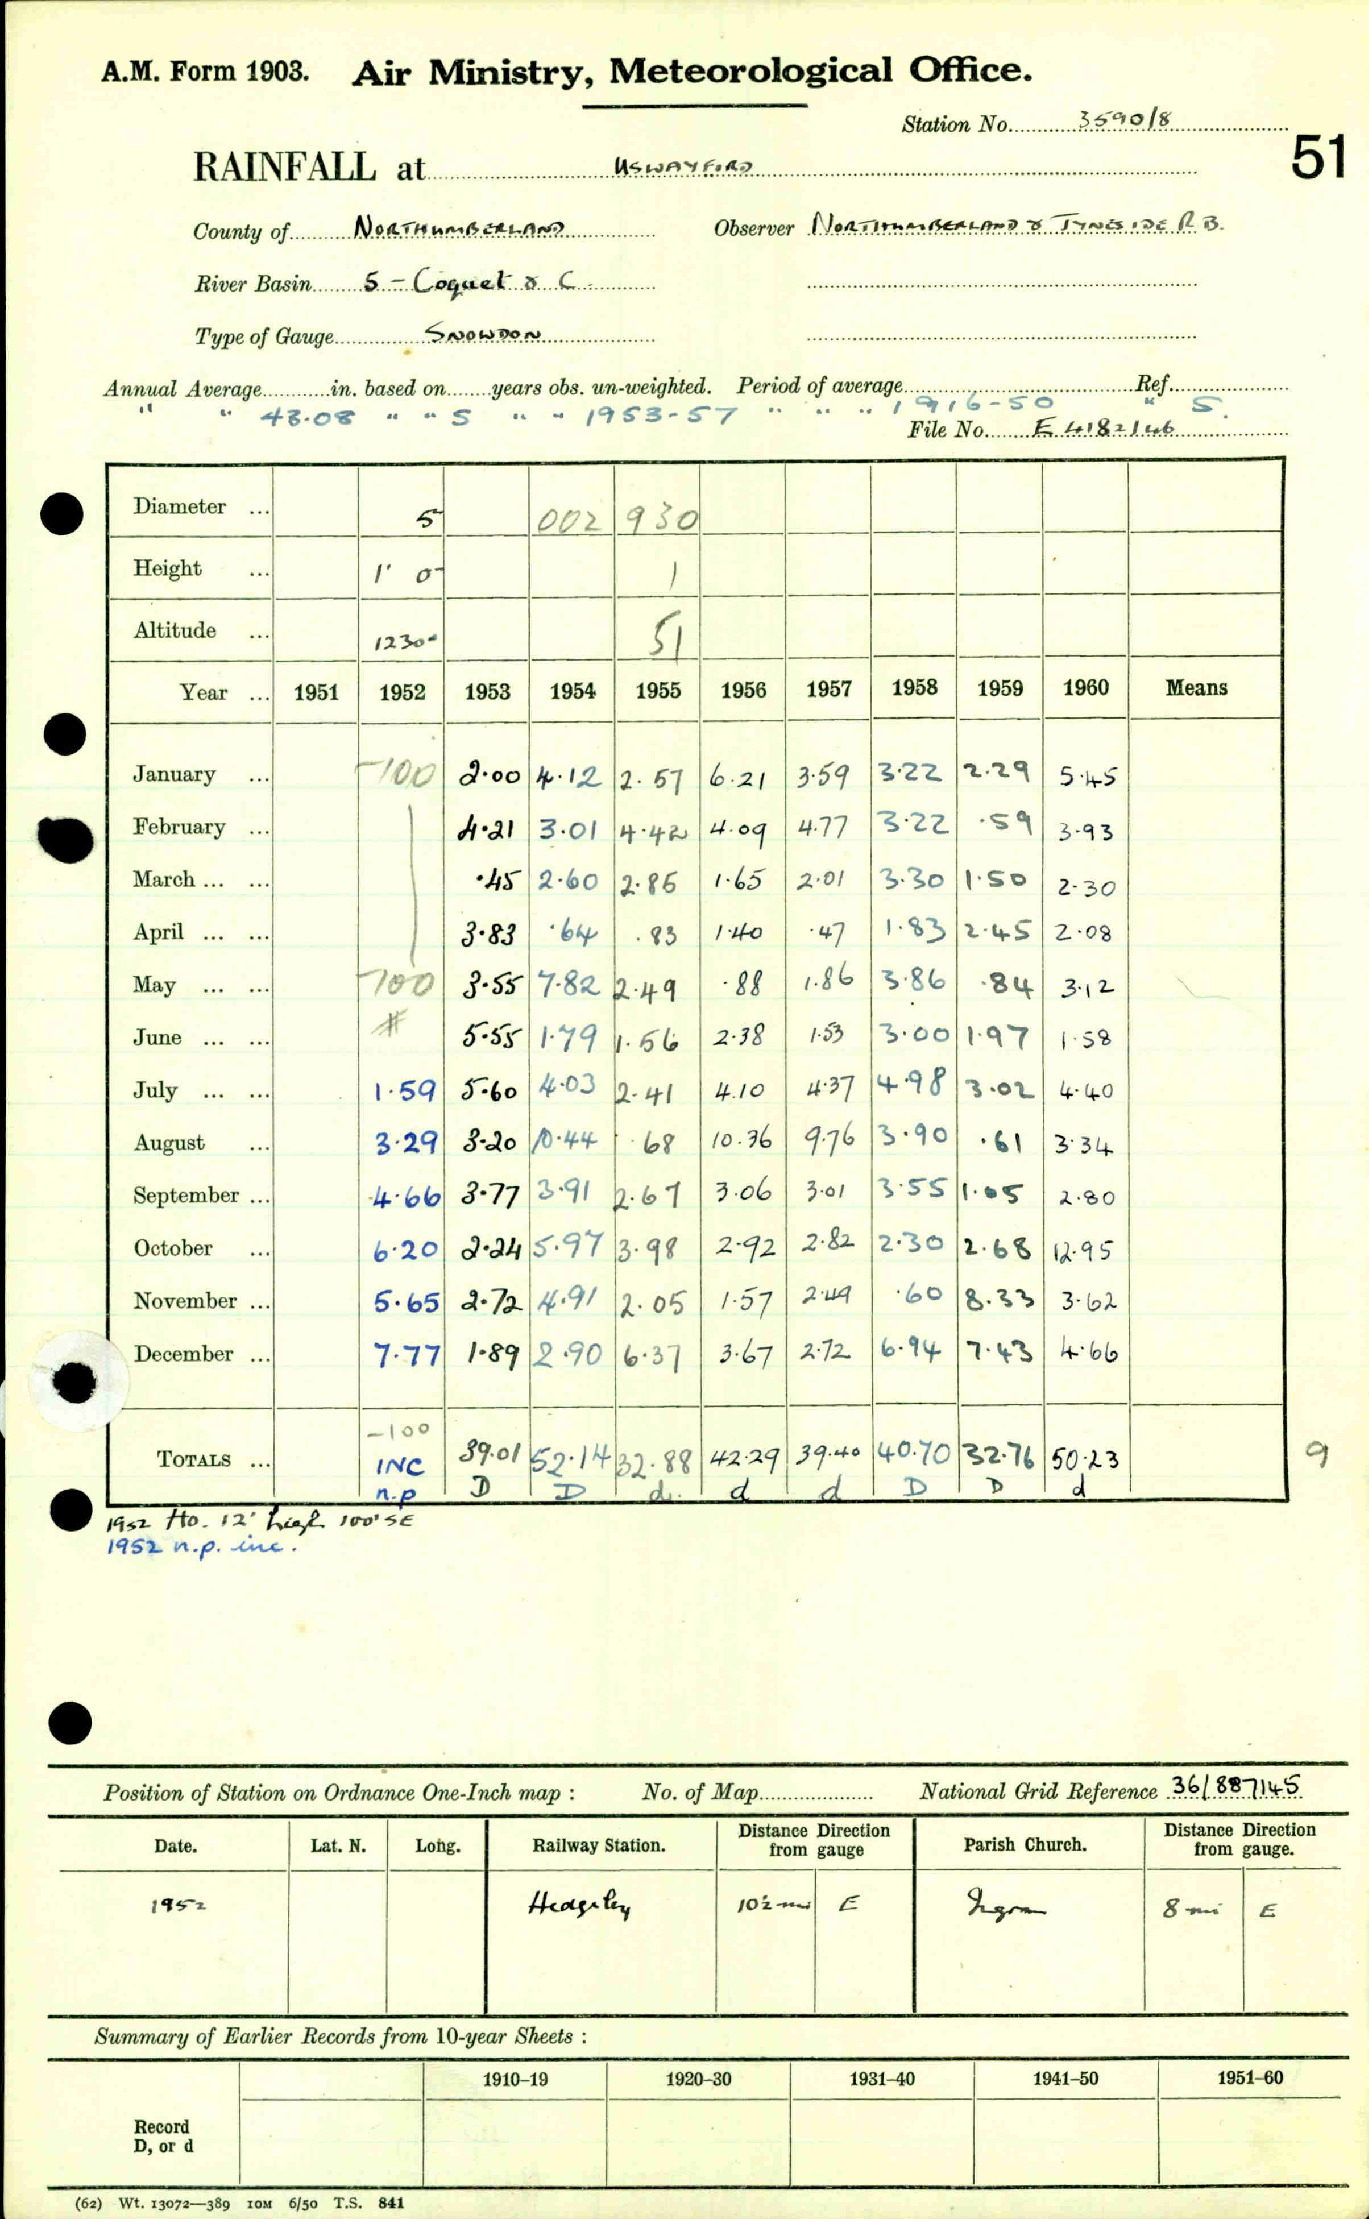 A.M. Form 1903. Air Ministry, Meteorological Office.
Station No. 3590/8
51
RAINFALL at USWAYFORD
County of NORTHUMBERLAND Observer NORTHUMBERLAND & TYNESIDE R.B.
River Basin 5 - Coquet & C.
Type of Gauge SNOWDON
Annual Average in. based on years obs. un-weighted. Period of average Ref.
" " 43.08 " " 5 " " 1953-57 " " " 1916-50 " S.
File No. E 4182/46
Diameter ... 5 002 930
Height ... 1' 0 1
Altitude ... 1230 51
Year ... 1951 1952 1953 1954 1955 1956 1957 1958 1959 1960 Means
January ... -100 2.00 4.12 2.57 6.21 3.59 3.22 2.29 5.45
February ... 4.21 3.01 4.42 4.09 4.77 3.22 .59 3.93
March ... ... .45 2.60 2.85 1.65 2.01 3.30 1.50 2.30
April ... ... 3.83 .64 .83 1.40 .47 1.83 2.45 2.08
May ... ... -100 3.55 7.82 2.49 .88 1.86 3.86 .84 3.12
June ... ... # 5.55 1.79 1.56 2.38 1.53 3.00 1.97 1.58
July ... ... 1.59 5.60 4.03 2.41 4.10 4.37 4.98 3.02 4.40
August ... 3.29 3.20 10.44 .68 10.36 9.76 3.90 .61 3.34
September ... 4.66 3.77 3.91 2.67 3.06 3.01 3.55 1.05 2.80
October ... 6.20 2.24 5.97 3.98 2.92 2.82 2.30 2.68 12.95
November ... 5.65 2.72 4.91 2.05 1.57 2.49 .60 8.33 3.62
December ... 7.77 1.89 2.90 6.37 3.67 2.72 6.94 7.43 4.66
-100
TOTALS ... INC 39.01 52.14 32.88 42.29 39.40 40.70 32.76 50.23 9
n.p D D d. d d D D d
1952 Ho. 12' high 100' SE
1952 n.p. inc.
Position of Station on Ordnance One-Inch map : No. of Map National Grid Reference 36/887145
Date. Lat. N. Long. Railway Station. Distance from Direction gauge Parish Church. Distance from Direction gauge.
1952 Hedgeley 10½ mi E Ingram 8 mi E
Summary of Earlier Records from 10-year Sheets :
1910–19 1920–30 1931–40 1941–50 1951–60
Record
D, or d
(62) Wt. 13072—389 10M 6/50 T.S. 841